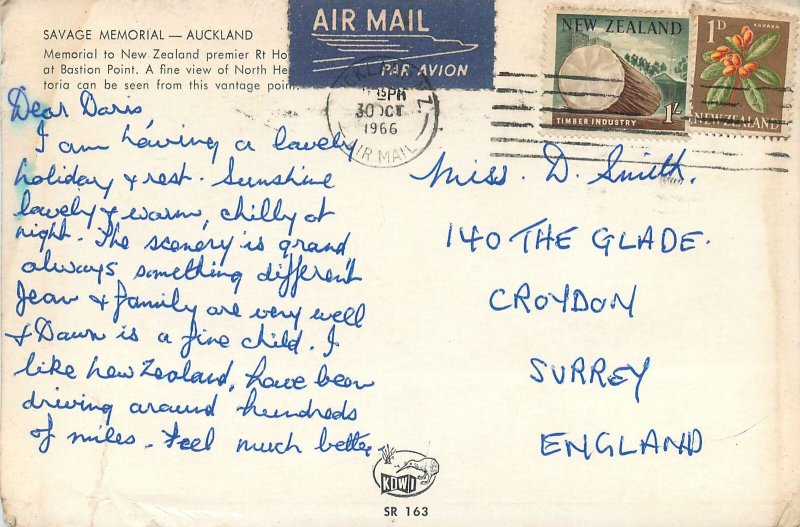 SAVAGE MEMORIAL — AUCKLAND
Memorial to New Zealand premier Rt Ho
at Bastion Point. A fine view of North He
toria can be seen from this vantage point.
AIR MAIL
PAR AVION
PM
30 OCT
1966
AIR MAIL
NEW ZEALAND
TIMBER INDUSTRY
1/-
1D
KARAKA
NEW ZEALAND
Dear Doris,
I am having a lovely
holiday & rest. Sunshine
lovely & warm, chilly at
night. The scenery is grand
always something different
Jean & family are very well
& Dawn is a fine child. I
like New Zealand, have been
driving around hundreds
of miles. Feel much better
Miss. D. Smith.
140 THE GLADE.
CROYDON
SURREY
ENGLAND
KIWI
SR 163